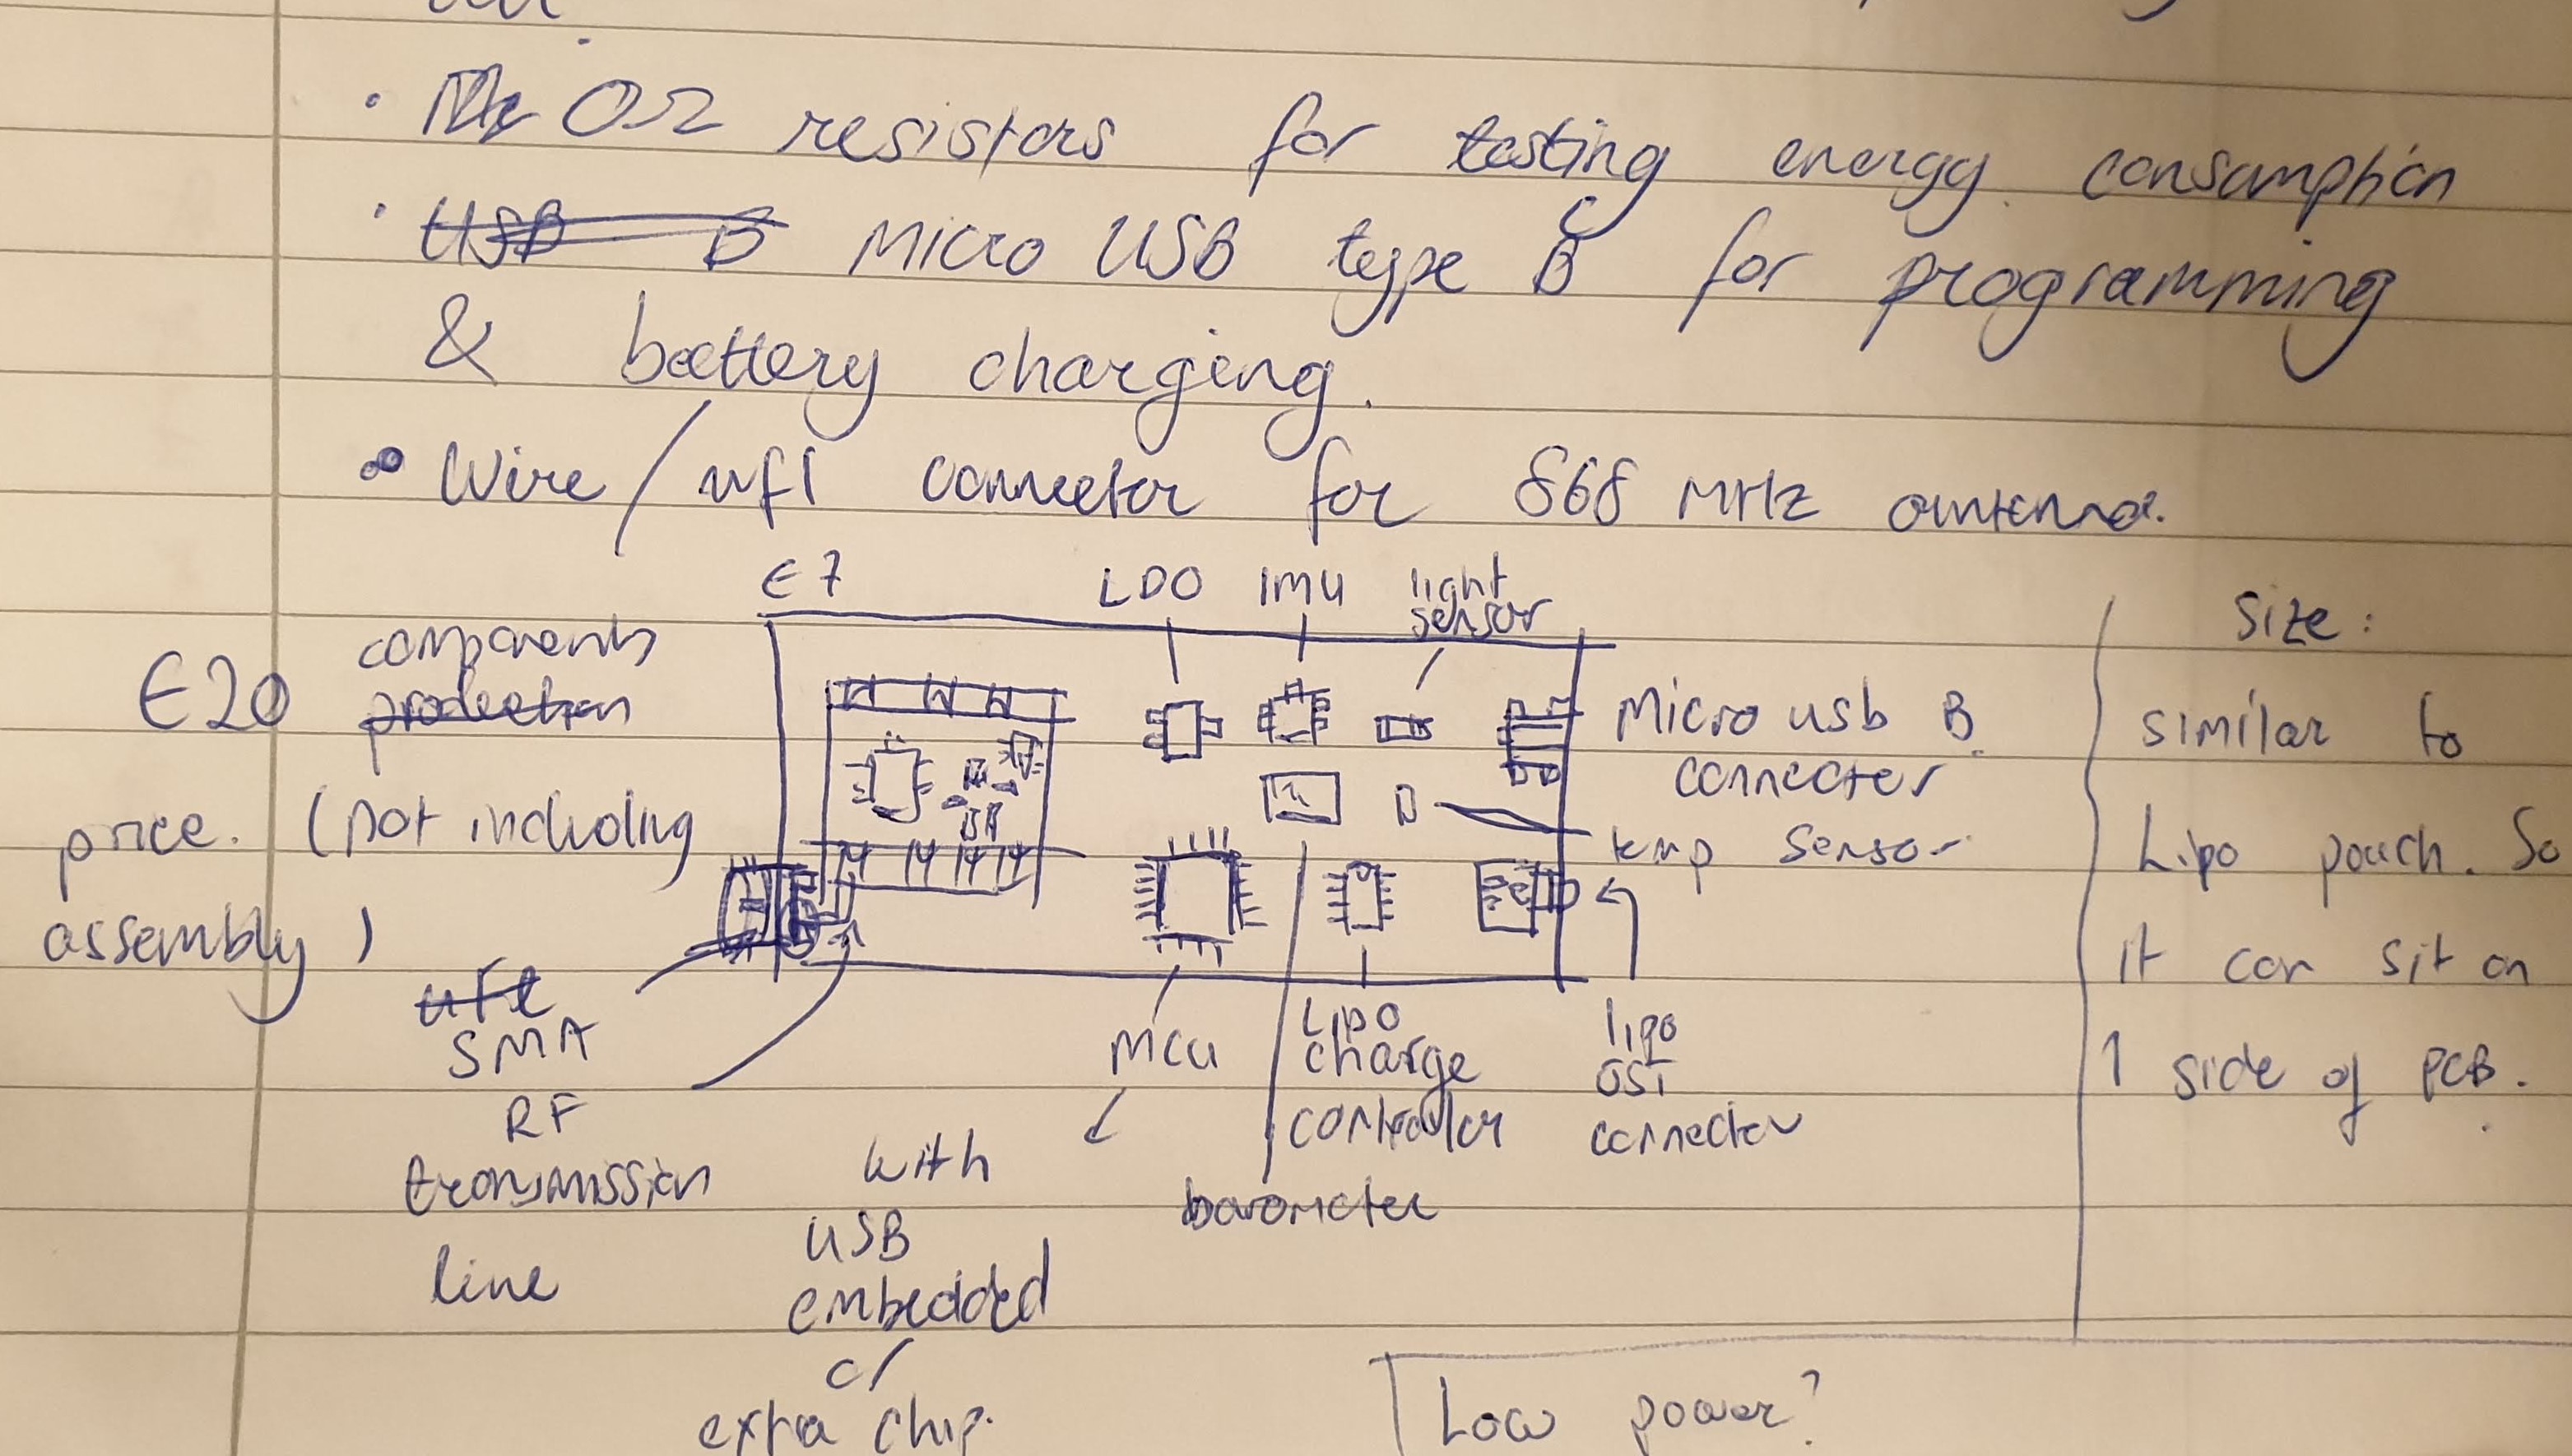 • 0Ω resistors for testing energy consumption
• USB B Micro USB type B C for programming
& battery charging.
• Wire / ufl connector for 868 MHz antenna.
€7
LDO
IMU
light
sensor
components
€20 production
price. (not including
assembly)
Micro usb B
connecter
temp sensor
ufl
SMA
RF
transmission
line
MCU
with
USB
embedded
or
extra chip.
LIPO
charge
controller
barometer
lipo
connector
Size:
similar to
Lipo pouch. So
it can sit on
1 side of PCB.
Low power?